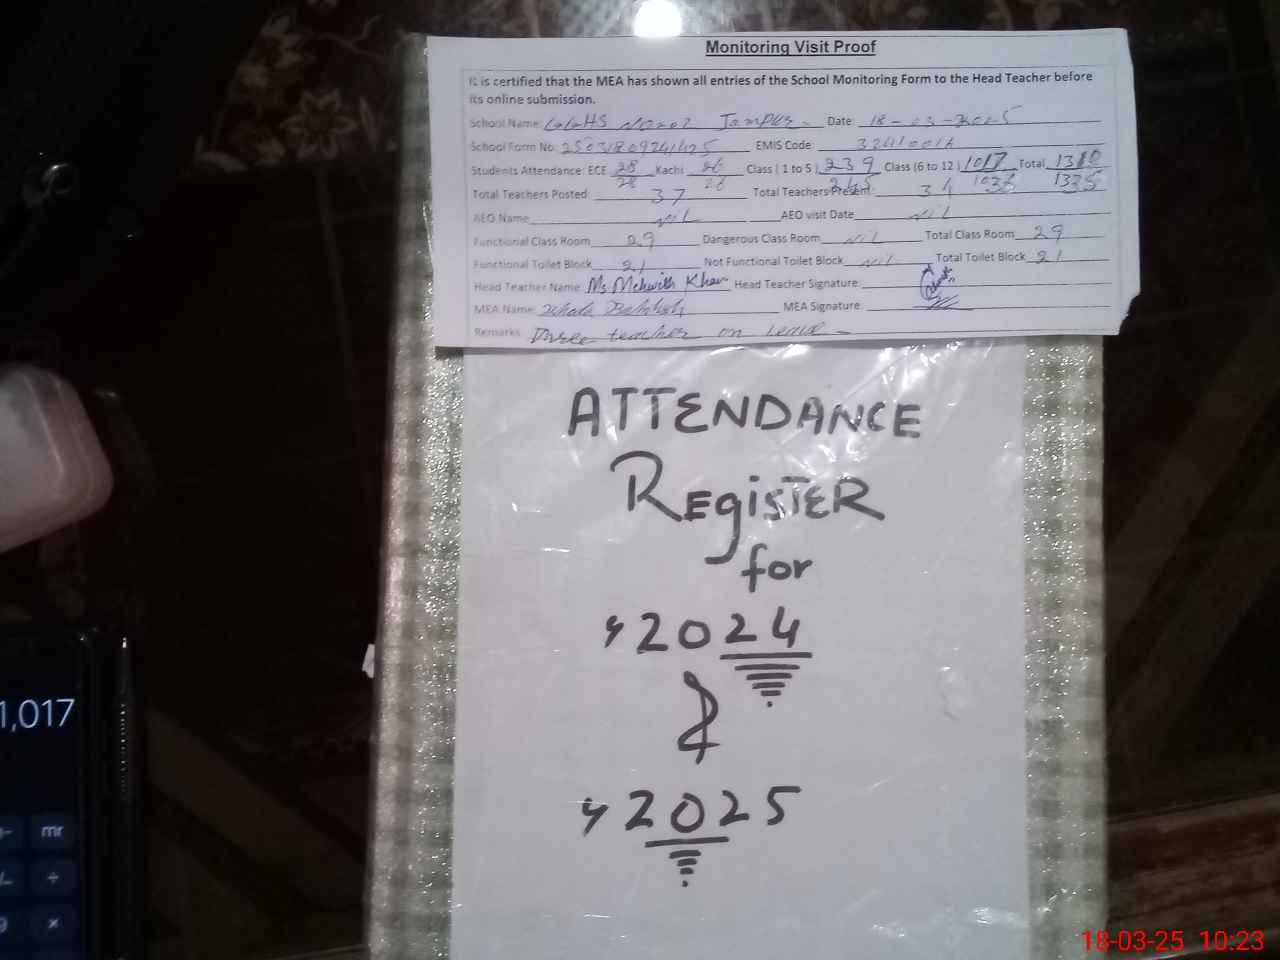 Monitoring Visit Proof
It is certified that the MEA has shown all entries of the School Monitoring Form to the Head Teacher before
its online submission.
School Name: GGHS No. 2 Jampur - Date: 18-03-2025
School Form No: EMIS Code: 32410016
Students Attendance: ECE 28 Kachi 26 Class (1 to 5) 239 Class (6 to 12) 1017 Total 1310
28 26 245 1036 1335
Total Teachers Posted: 37 Total Teachers Present: 34
AEO Name Nil AEO visit Date Nil
Functional Class Room 29 Dangerous Class Room Nil Total Class Room 29
Functional Toilet Block 21 Not Functional Toilet Block Nil Total Toilet Block 21
Head Teacher Name: Ms. Mehwish Khan Head Teacher Signature:
MEA Name: MEA Signature:
Remarks: Three teacher on leave -
ATTENDANCE
REgiSTER
for
2024
&
2025
1,017
mr
÷
9 ×
18-03-25 10:23